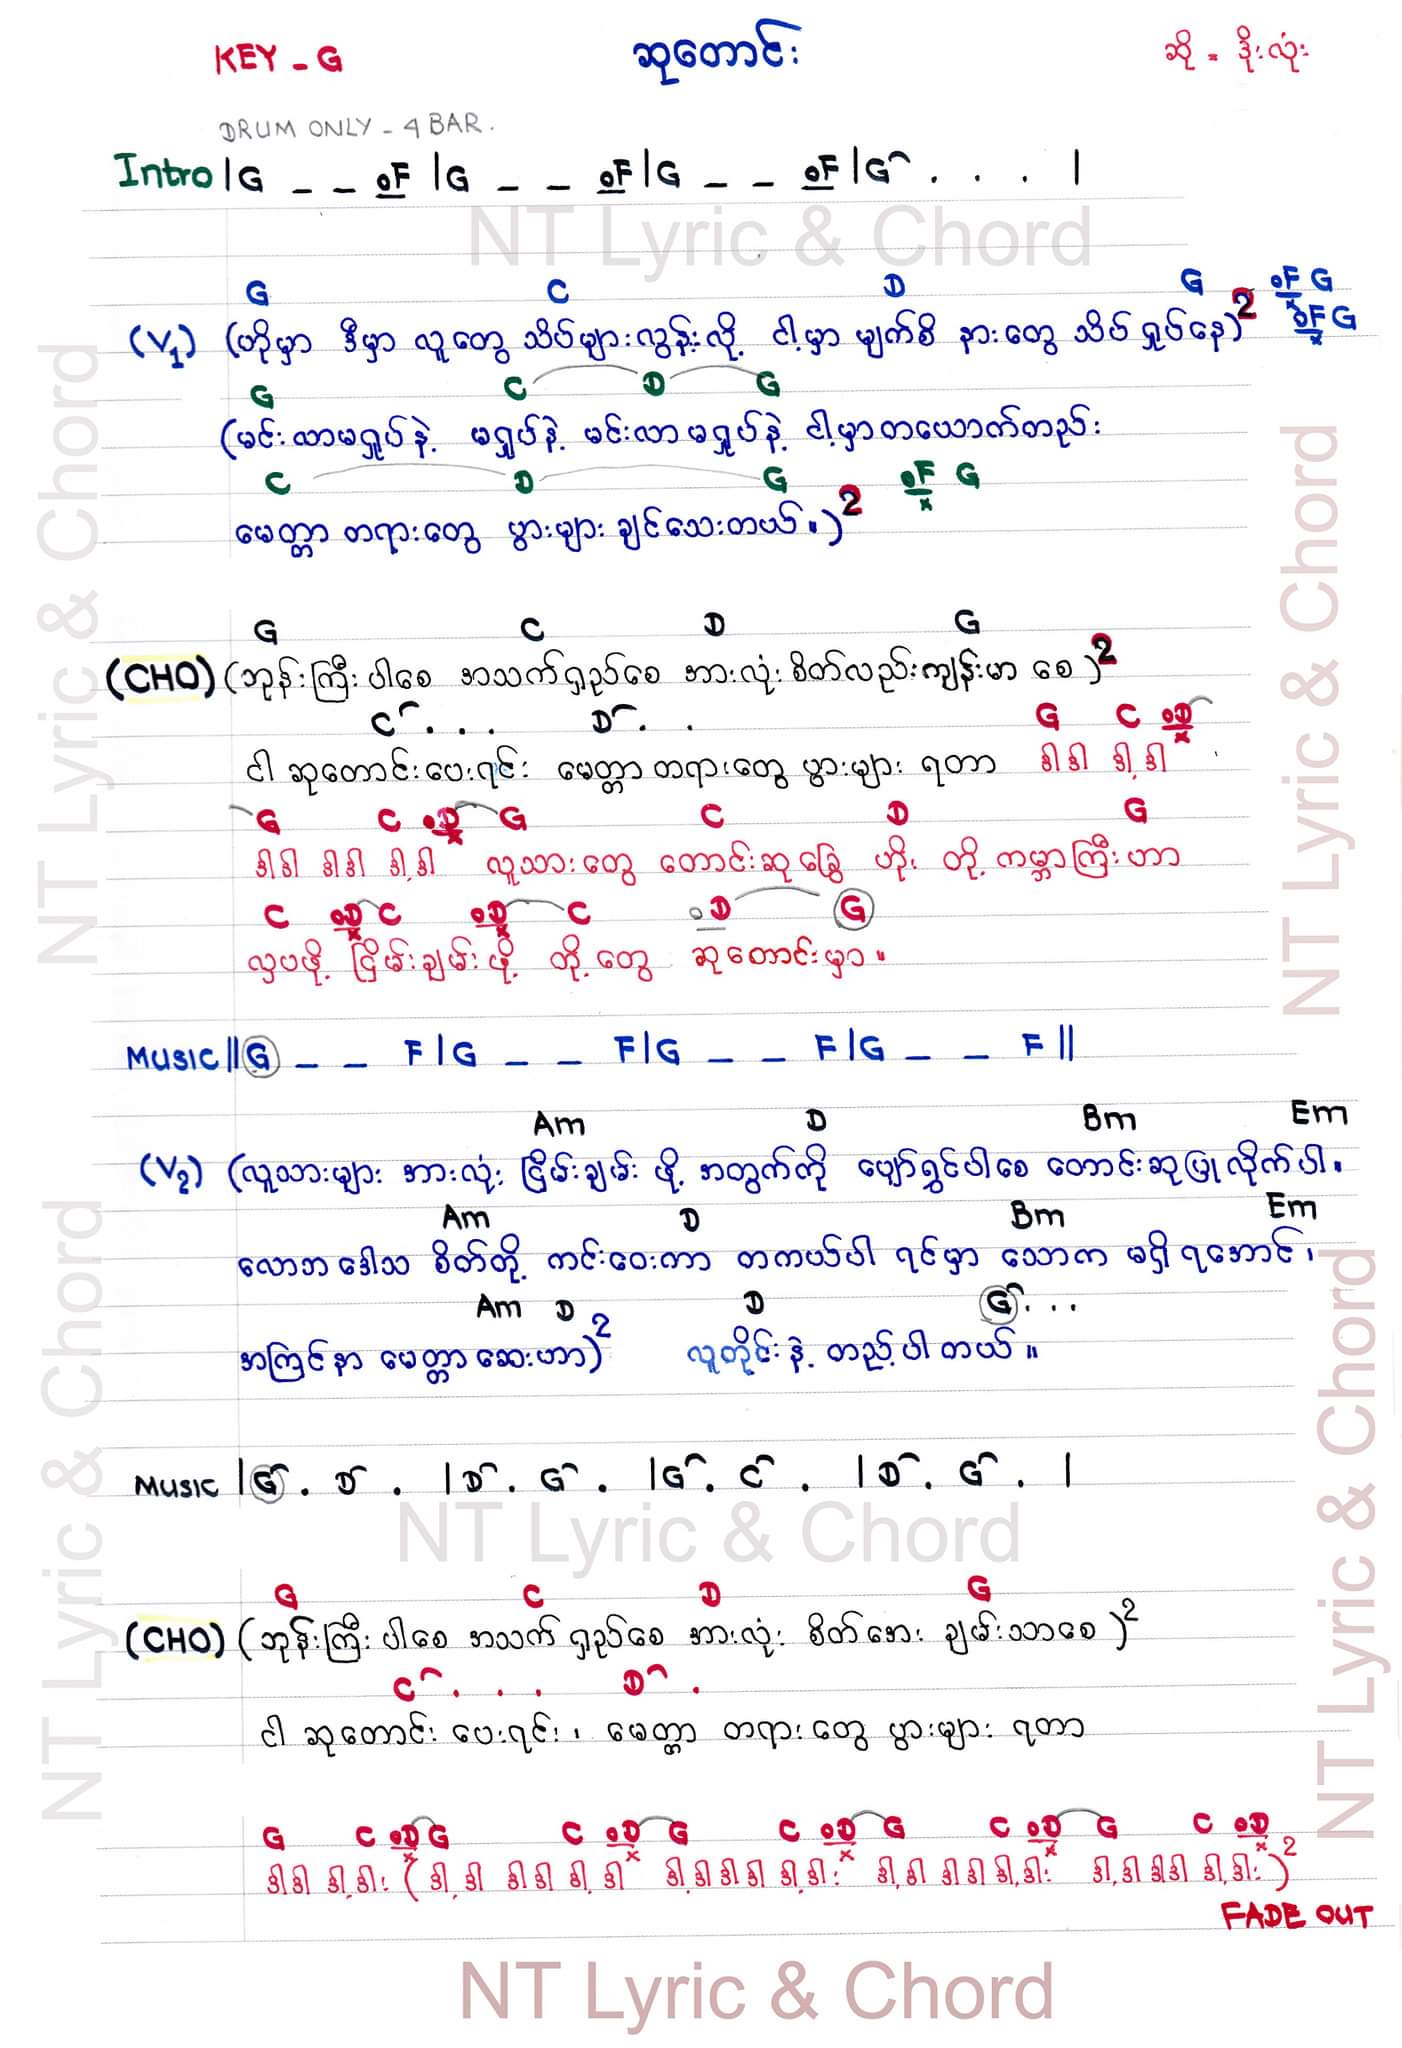 KEY - G
ဆုတောင်း
ဆို = ဒိုးလုံး
DRUM ONLY - 4 BAR.
Intro |G _ _ oF |G _ _ oF |G _ _ oF |G . . . |
NT Lyric & Chord
G C D G oF G
(V1) (ဟိုမှာ ဒီမှာ လူတွေ သိပ်များလွန်းလို့ ငါ့မှာ မျက်စိ နားတွေ သိပ်ရှုပ်နေ)2 oF G
G C D G
(မင်းလာမရှုပ်နဲ့ မရှုပ်နဲ့ မင်းလာမရှုပ်နဲ့ ငါ့မှာတယောက်တည်း
C D G oF G
မေတ္တာ တရားတွေ ပွားများ ချင်သေးတယ်။)2
G C D G
(CHO) (ဘုန်းကြီးပါစေ အသက်ရှည်စေ အားလုံးစိတ်လည်းကျန်းမာ စေ)2
C . . . D . . G C oD
ငါ ဆုတောင်းပေးရင်း မေတ္တာတရားတွေ ပွားများ ရတာ ဒါဒါ ဒါ့ဒါ
G C oD G C D G
ဒါဒါ ဒါဒါ ဒါ့ဒါ လူသားတွေ တောင်းဆုခြွေ ဟိုး တို့ ကမ္ဘာကြီးဟာ
C oD C oD C oD G
လှပဖို့ ငြိမ်းချမ်းဖို့ တို့တွေ ဆုတောင်းမှာ။
MUSIC ||G _ _ F |G _ _ F |G _ _ F |G _ _ F ||
Am D Bm Em
(V2) (လူသားများ အားလုံး ငြိမ်းချမ်း ဖို့ အတွက်ကို ပျော်ရွှင်ပါစေ တောင်းဆုပြုလိုက်ပါ။
Am D Bm Em
လောဘ ဒေါသ စိတ်တို့ ကင်းဝေးကာ တကယ်ပါ ရင်မှာ သောက မရှိရအောင်၊
Am D D G . . .
အကြင်နာ မေတ္တာဆေးဟာ)2 လူတိုင်းနဲ့ တည့်ပါတယ်။
MUSIC |G . D . |D . G . |G . C . |D . G . |
NT Lyric & Chord
G C D G
(CHO) (ဘုန်းကြီးပါစေ အသက်ရှည်စေ အားလုံး စိတ်အေး ချမ်းသာစေ)2
C . . . D .
ငါ ဆုတောင်း ပေးရင်း၊ မေတ္တာ တရားတွေ ပွားများ ရတာ
G C oD G C oD G C oD G C oD G C oD
ဒါဒါ ဒါ့ဒါး (ဒါ့ဒါ ဒါဒါ ဒါ့ဒါ ဒါ့ဒါဒါဒါ ဒါ့ဒါး ဒါ့ဒါ ဒါဒါဒါ့ဒါး ဒါ့ဒါဒါဒါ ဒါ့ဒါး)2
FADE OUT
NT Lyric & Chord
NT Lyric & Chord
NT Lyric & Chord
NT Lyric & Chord
NT Lyric & Chord